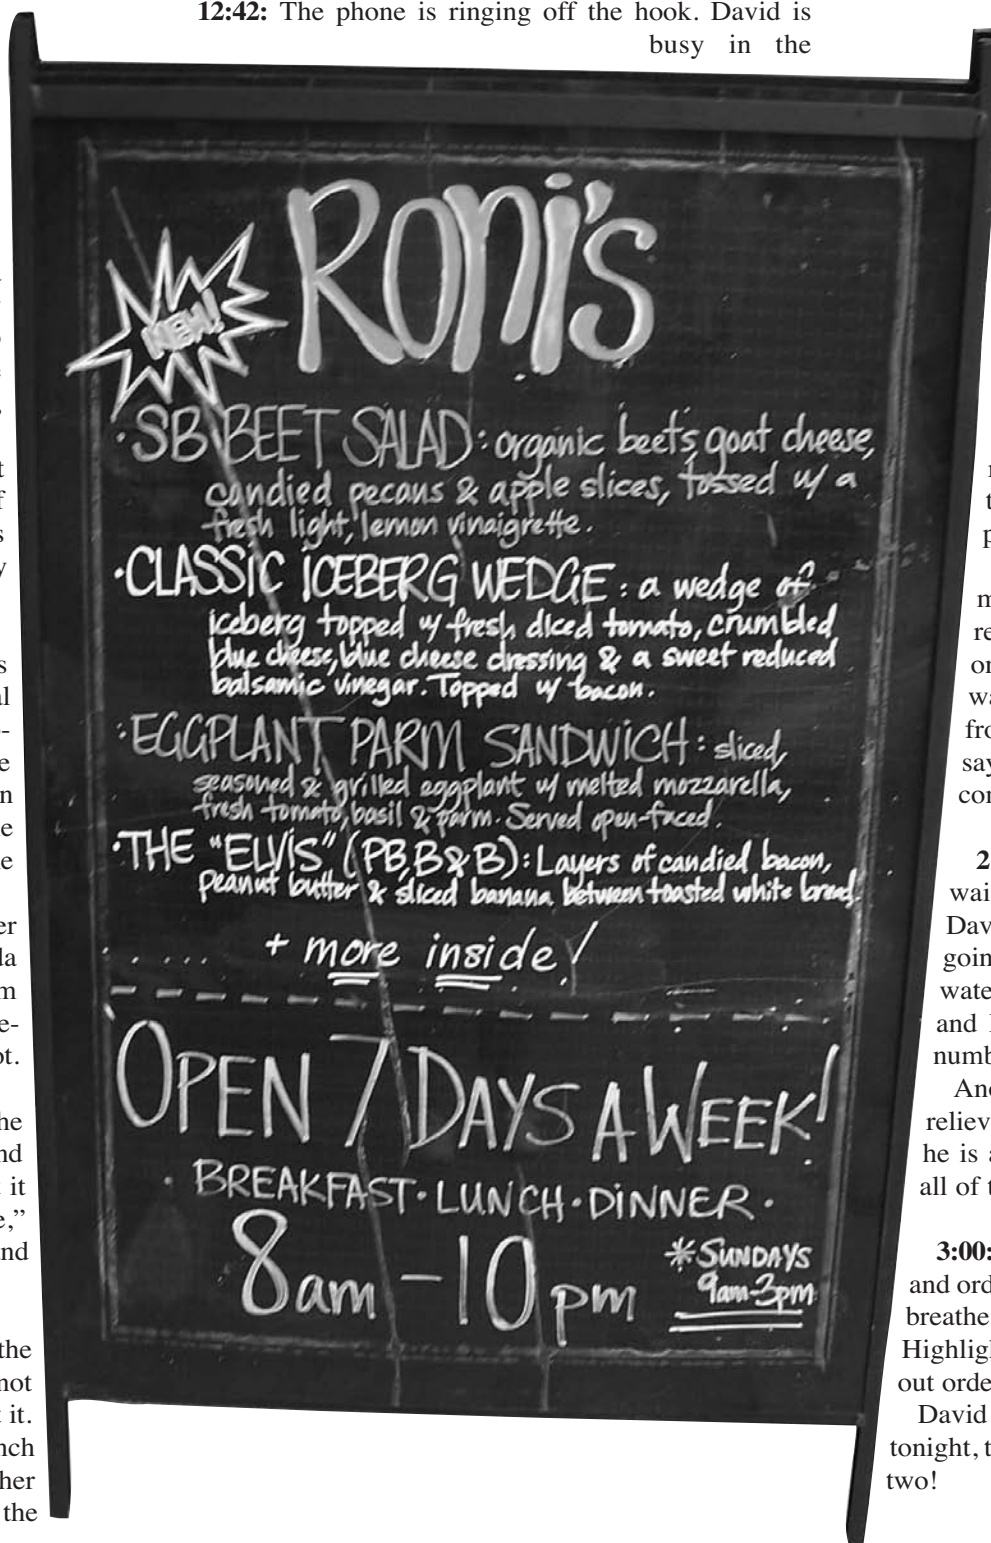 12:42: The phone is ringing off the hook. David is
busy in the
Roni's
NEW!
·SB BEET SALAD: organic beets, goat cheese,
candied pecans & apple slices, tossed w/ a
fresh light, lemon vinaigrette.
·CLASSIC ICEBERG WEDGE: a wedge of
iceberg topped w/ fresh diced tomato, crumbled
blue cheese, blue cheese dressing & a sweet reduced
balsamic vinegar. Topped w/ bacon.
·EGGPLANT PARM SANDWICH: sliced,
seasoned & grilled eggplant w/ melted mozzarella,
fresh tomato, basil & parm. Served open-faced.
·THE "ELVIS" (PB,B&B): Layers of candied bacon,
peanut butter & sliced banana between toasted white bread.
..... + more inside!
OPEN 7 DAYS A WEEK!
· BREAKFAST · LUNCH · DINNER ·
8am - 10pm
*SUNDAYS
9am-3pm
the
not
it.
her
the
wai
Dav
goin
wate
and
numb
And
reliev
he is a
all of t
3:00:
and ord
breathe
Highligh
out orde
David
tonight, t
two!